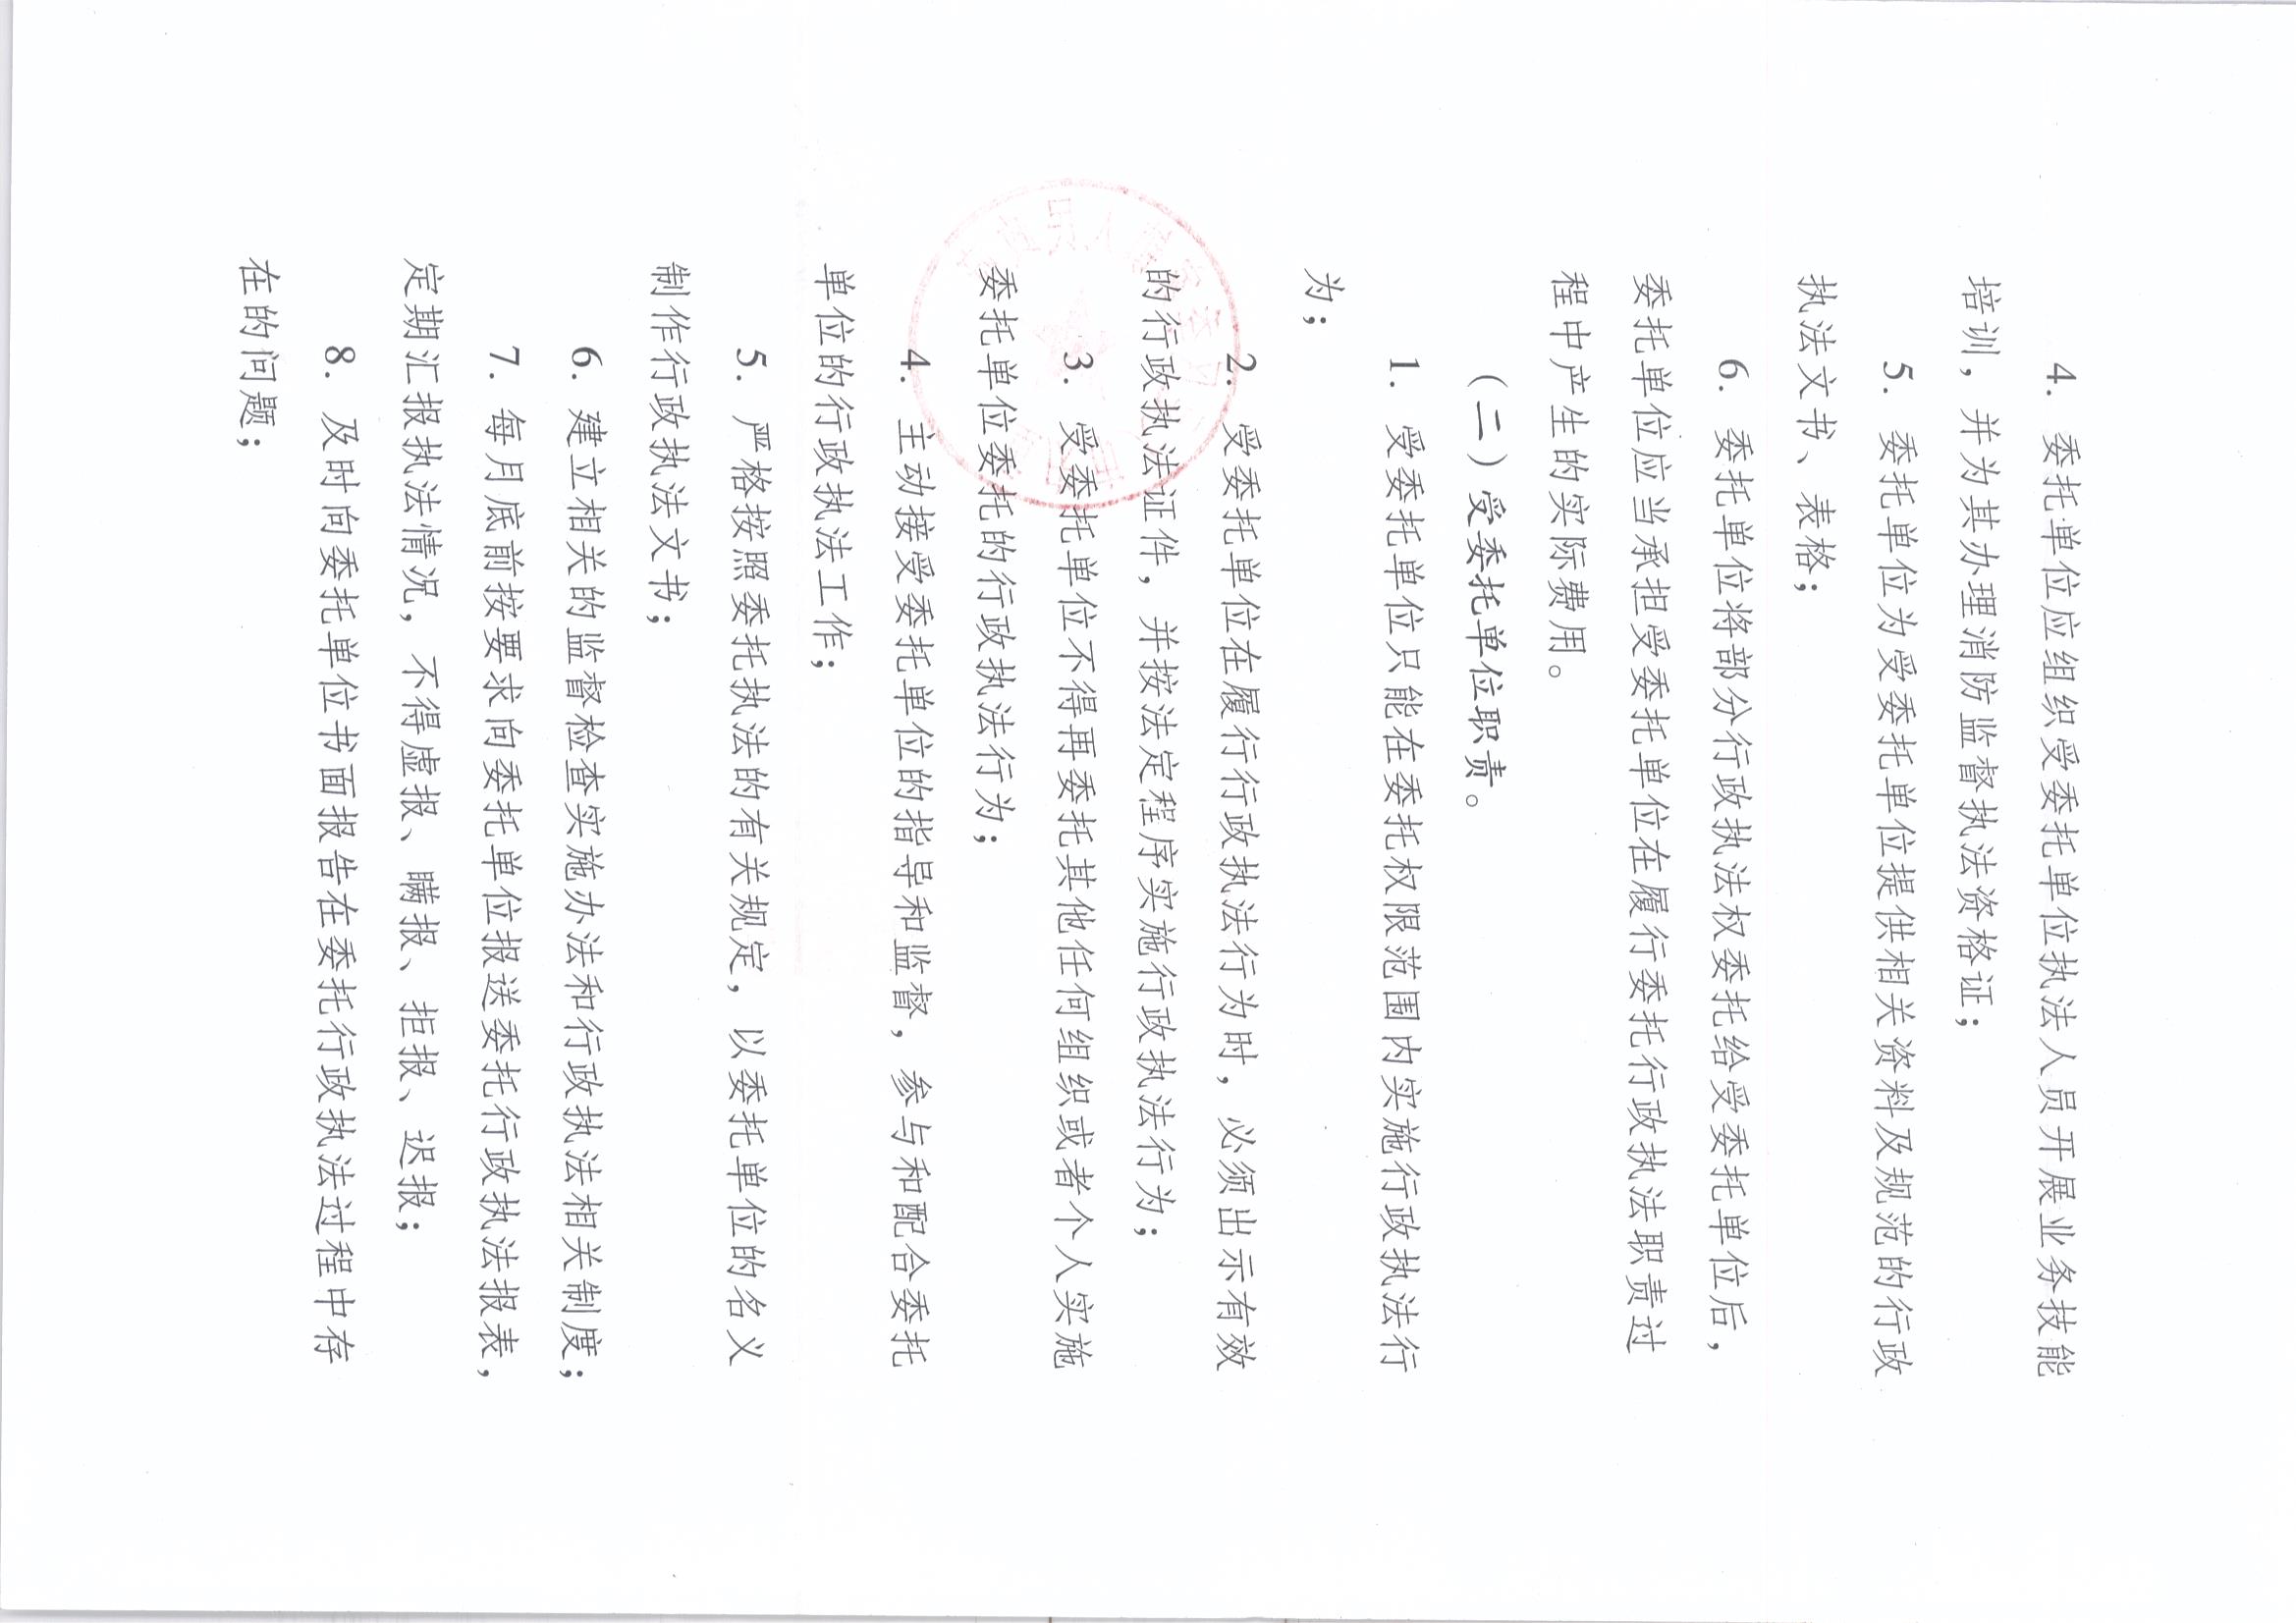 4. 委托单位应组织受委托单位执法人员开展业务技能
培训，并为其办理消防监督执法资格证；
5. 委托单位为受委托单位提供相关资料及规范的行政
执法文书、表格；
6. 委托单位将部分行政执法权委托给受委托单位后，
委托单位应当承担受委托单位在履行委托行政执法职责过
程中产生的实际费用。
（二）受委托单位职责。
1. 受委托单位只能在委托权限范围内实施行政执法行
为；
2. 受委托单位在履行行政执法行为时，必须出示有效
的行政执法证件，并按法定程序实施行政执法行为；
3. 受委托单位不得再委托其他任何组织或者个人实施
委托单位委托的行政执法行为；
4. 主动接受委托单位的指导和监督，参与和配合委托
单位的行政执法工作；
5. 严格按照委托执法的有关规定，以委托单位的名义
制作行政执法文书；
6. 建立相关的监督检查实施办法和行政执法相关制度；
7. 每月底前按要求向委托单位报送委托行政执法报表，
定期汇报执法情况，不得虚报、瞒报、拒报、迟报；
8. 及时向委托单位书面报告在委托行政执法过程中存
在的问题；